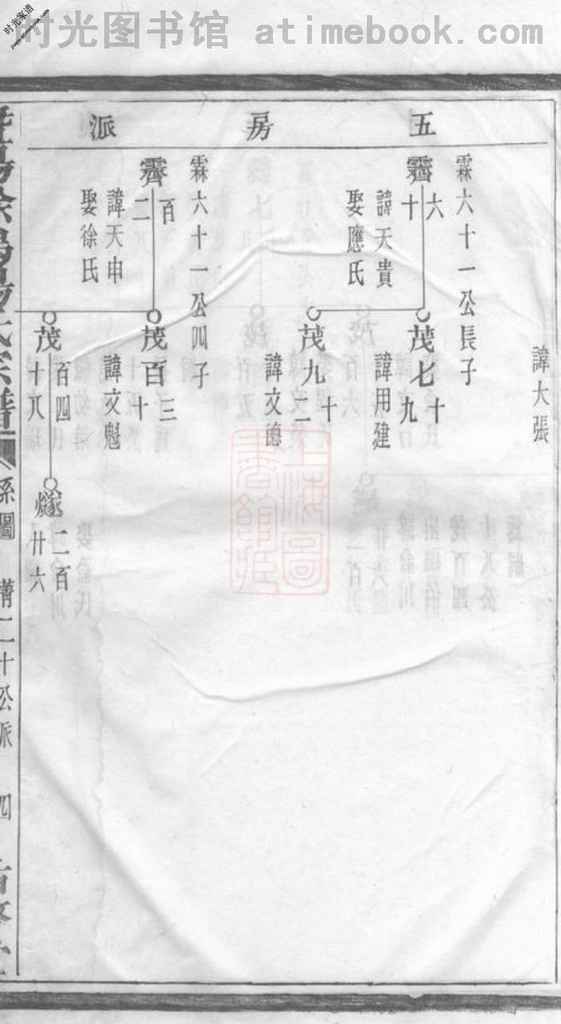 时光图书馆 - www.atimebook.com
时光家谱
五房派
諱大張
霖六十一公長子
霽六十
諱天貴
娶應氏
茂七十九
諱用建
茂九十二
諱文德
霖六十一公四子
霽百二
諱天申
娶徐氏
茂百三十
諱文魁
茂百四十八
燧二百廿六
系圖
二十公派
四
上海圖書館藏